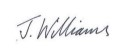 J. Williams